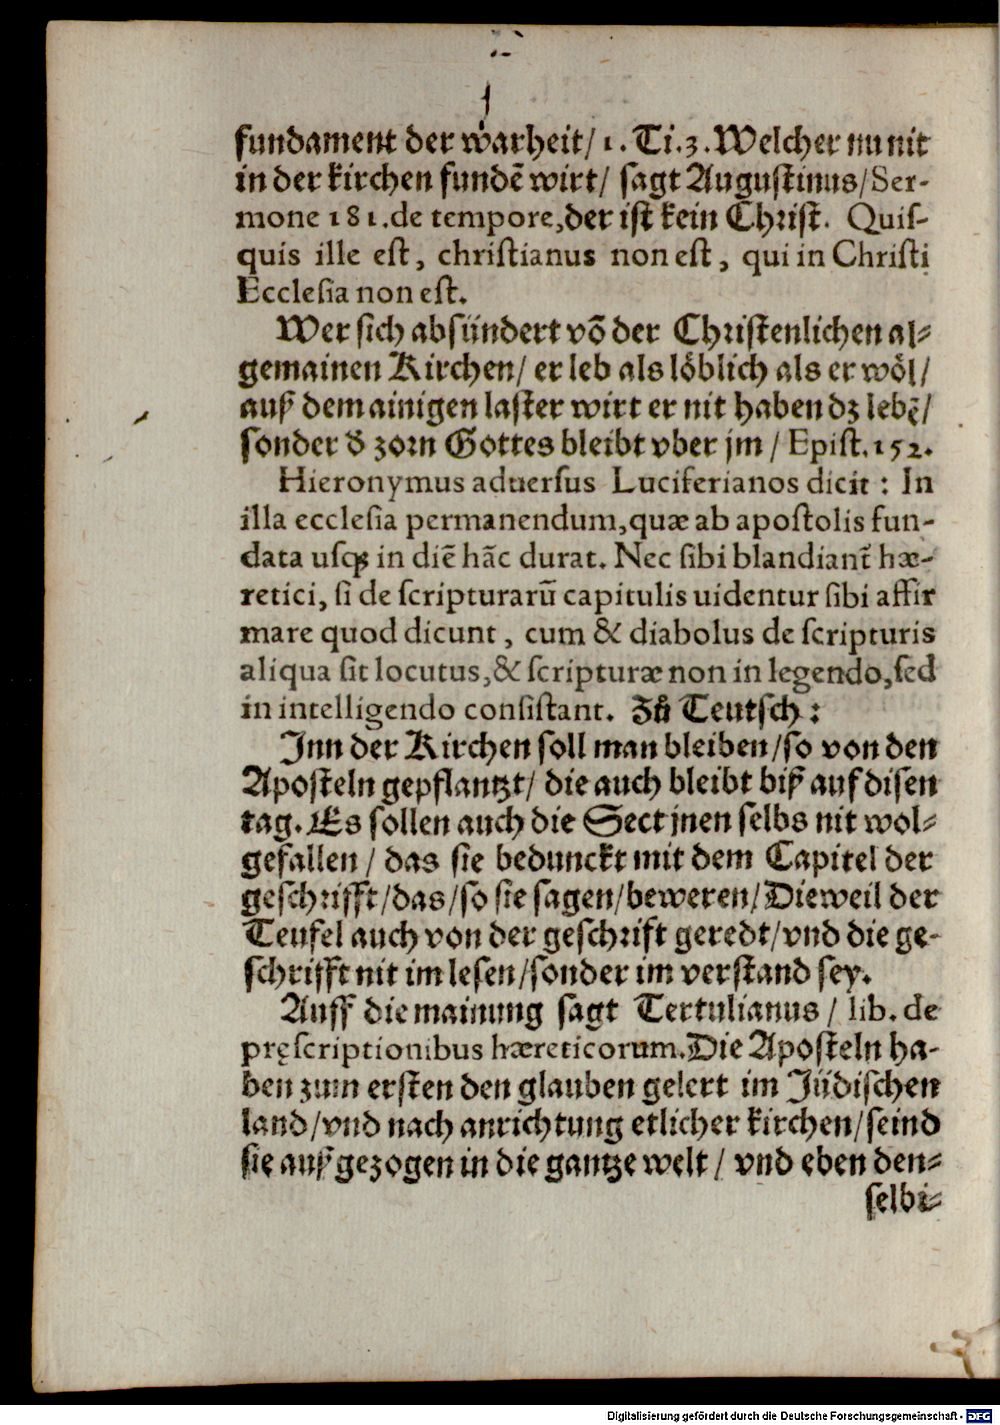 fundament der warheit/ 1. Ti.3. Welcher nu nit
in der kirchen fundẽ wirt/ sagt Augustinus/Ser-
mone 181.de tempore,der ist kein Christ. Quiſ-
quis ille eſt, chriſtianus non eſt, qui in Chriſti
Eccleſia non eſt.
Wer sich absündert võ der Christenlichen al-
gemainen Kirchen/ er leb als löblich als er wöl/
auß dem ainigen laster wirt er nit haben dz lebẽ/
sonder d̕ zorn Gottes bleibt vber jm / Epiſt.152.
Hieronymus aduerſus Luciferianos dicit : In
illa eccleſia permanendum,quæ ab apoſtolis fun-
data uſqꝫ in diẽ hãc durat. Nec ſibi blandiant᷑ hæ-
retici, ſi de ſcripturarũ capitulis uidentur ſibi affir
mare quod dicunt, cum & diabolus de ſcripturis
aliqua ſit locutus,& ſcripturæ non in legendo,ſed
in intelligendo conſiſtant. Zů Teutsch :
Inn der Kirchen soll man bleiben/so von den
Aposteln gepflantzt/ die auch bleibt biß auf disen
tag. Es sollen auch die Sect jnen selbs nit wol-
gefallen / das sie bedunckt mit dem Capitel der
geschrifft/das/so sie sagen/beweren/Dieweil der
Teufel auch von der geschrift geredt/vnd die ge-
schrifft nit im lesen/sonder im verstand sey.
Auff die mainung sagt Tertulianus / lib. de
pręſcriptionibus hæreticorum.Die Aposteln ha-
ben zum ersten den glauben gelert im Jüdischen
land/vnd nach anrichtung etlicher kirchen/seind
sie außgezogen in die gantze welt / vnd eben den-
selbi-
Digitalisierung gefördert durch die Deutsche Forschungsgemeinschaft - DFG